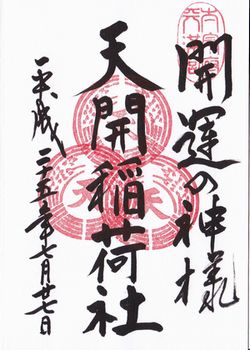 開運の神様
天開稲荷社
平成二十五年七月廿七日